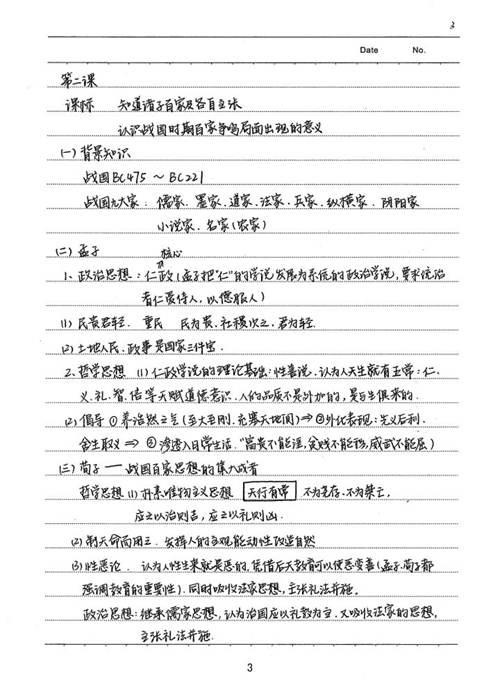 3
Date No.
第二课
课标 知道诸子百家及各自主张
认识战国时期百家争鸣局面出现的意义
(一) 背景知识
战国BC475 ~ BC221
战国九大家: 儒家、墨家、道家、法家、兵家、纵横家、阴阳家
小说家、名家(农家)
(二) 孟子 核心
1、政治思想: 仁政(孟子把"仁"的学说发展为系统的政治学说, 要求统治
者仁爱待人, 以德服人)
(1) 民贵君轻. 重民 民为贵、社稷次之、君为轻.
(2) 土地人民、政事是国家三件宝.
2、哲学思想 (1) 仁政学说的理论基础: 性善说, 认为人天生就有五常: 仁、
义、礼、智、信等天赋道德意识, 人的品质不是外加的, 是与生俱来的.
(2) 倡导 ① 养浩然之气(至大至刚, 充塞天地间) ⇒ ② 外化表现: 先义后利、
舍生取义 ⇒ ③ 渗透入日常生活. "富贵不能淫, 贫贱不能移, 威武不能屈)
(三) 荀子 — 战国百家思想的集大成者
哲学思想 (1) 朴素唯物主义思想 天行有常 不为尧存、不为桀亡,
应之以治则吉, 应之以乱则凶.
(2) 制天命而用之. 发挥人的主观能动性改造自然
(3) 性恶论. 认为人性生来就是恶的, 凭借后天教育可以使恶变善(孟子、荀子都
强调教育的重要性). 同时吸收法家思想, 主张礼法并施.
政治思想: 继承儒家思想, 认为治国应以礼教为主. 又吸收法家的思想,
主张礼法并施.
3